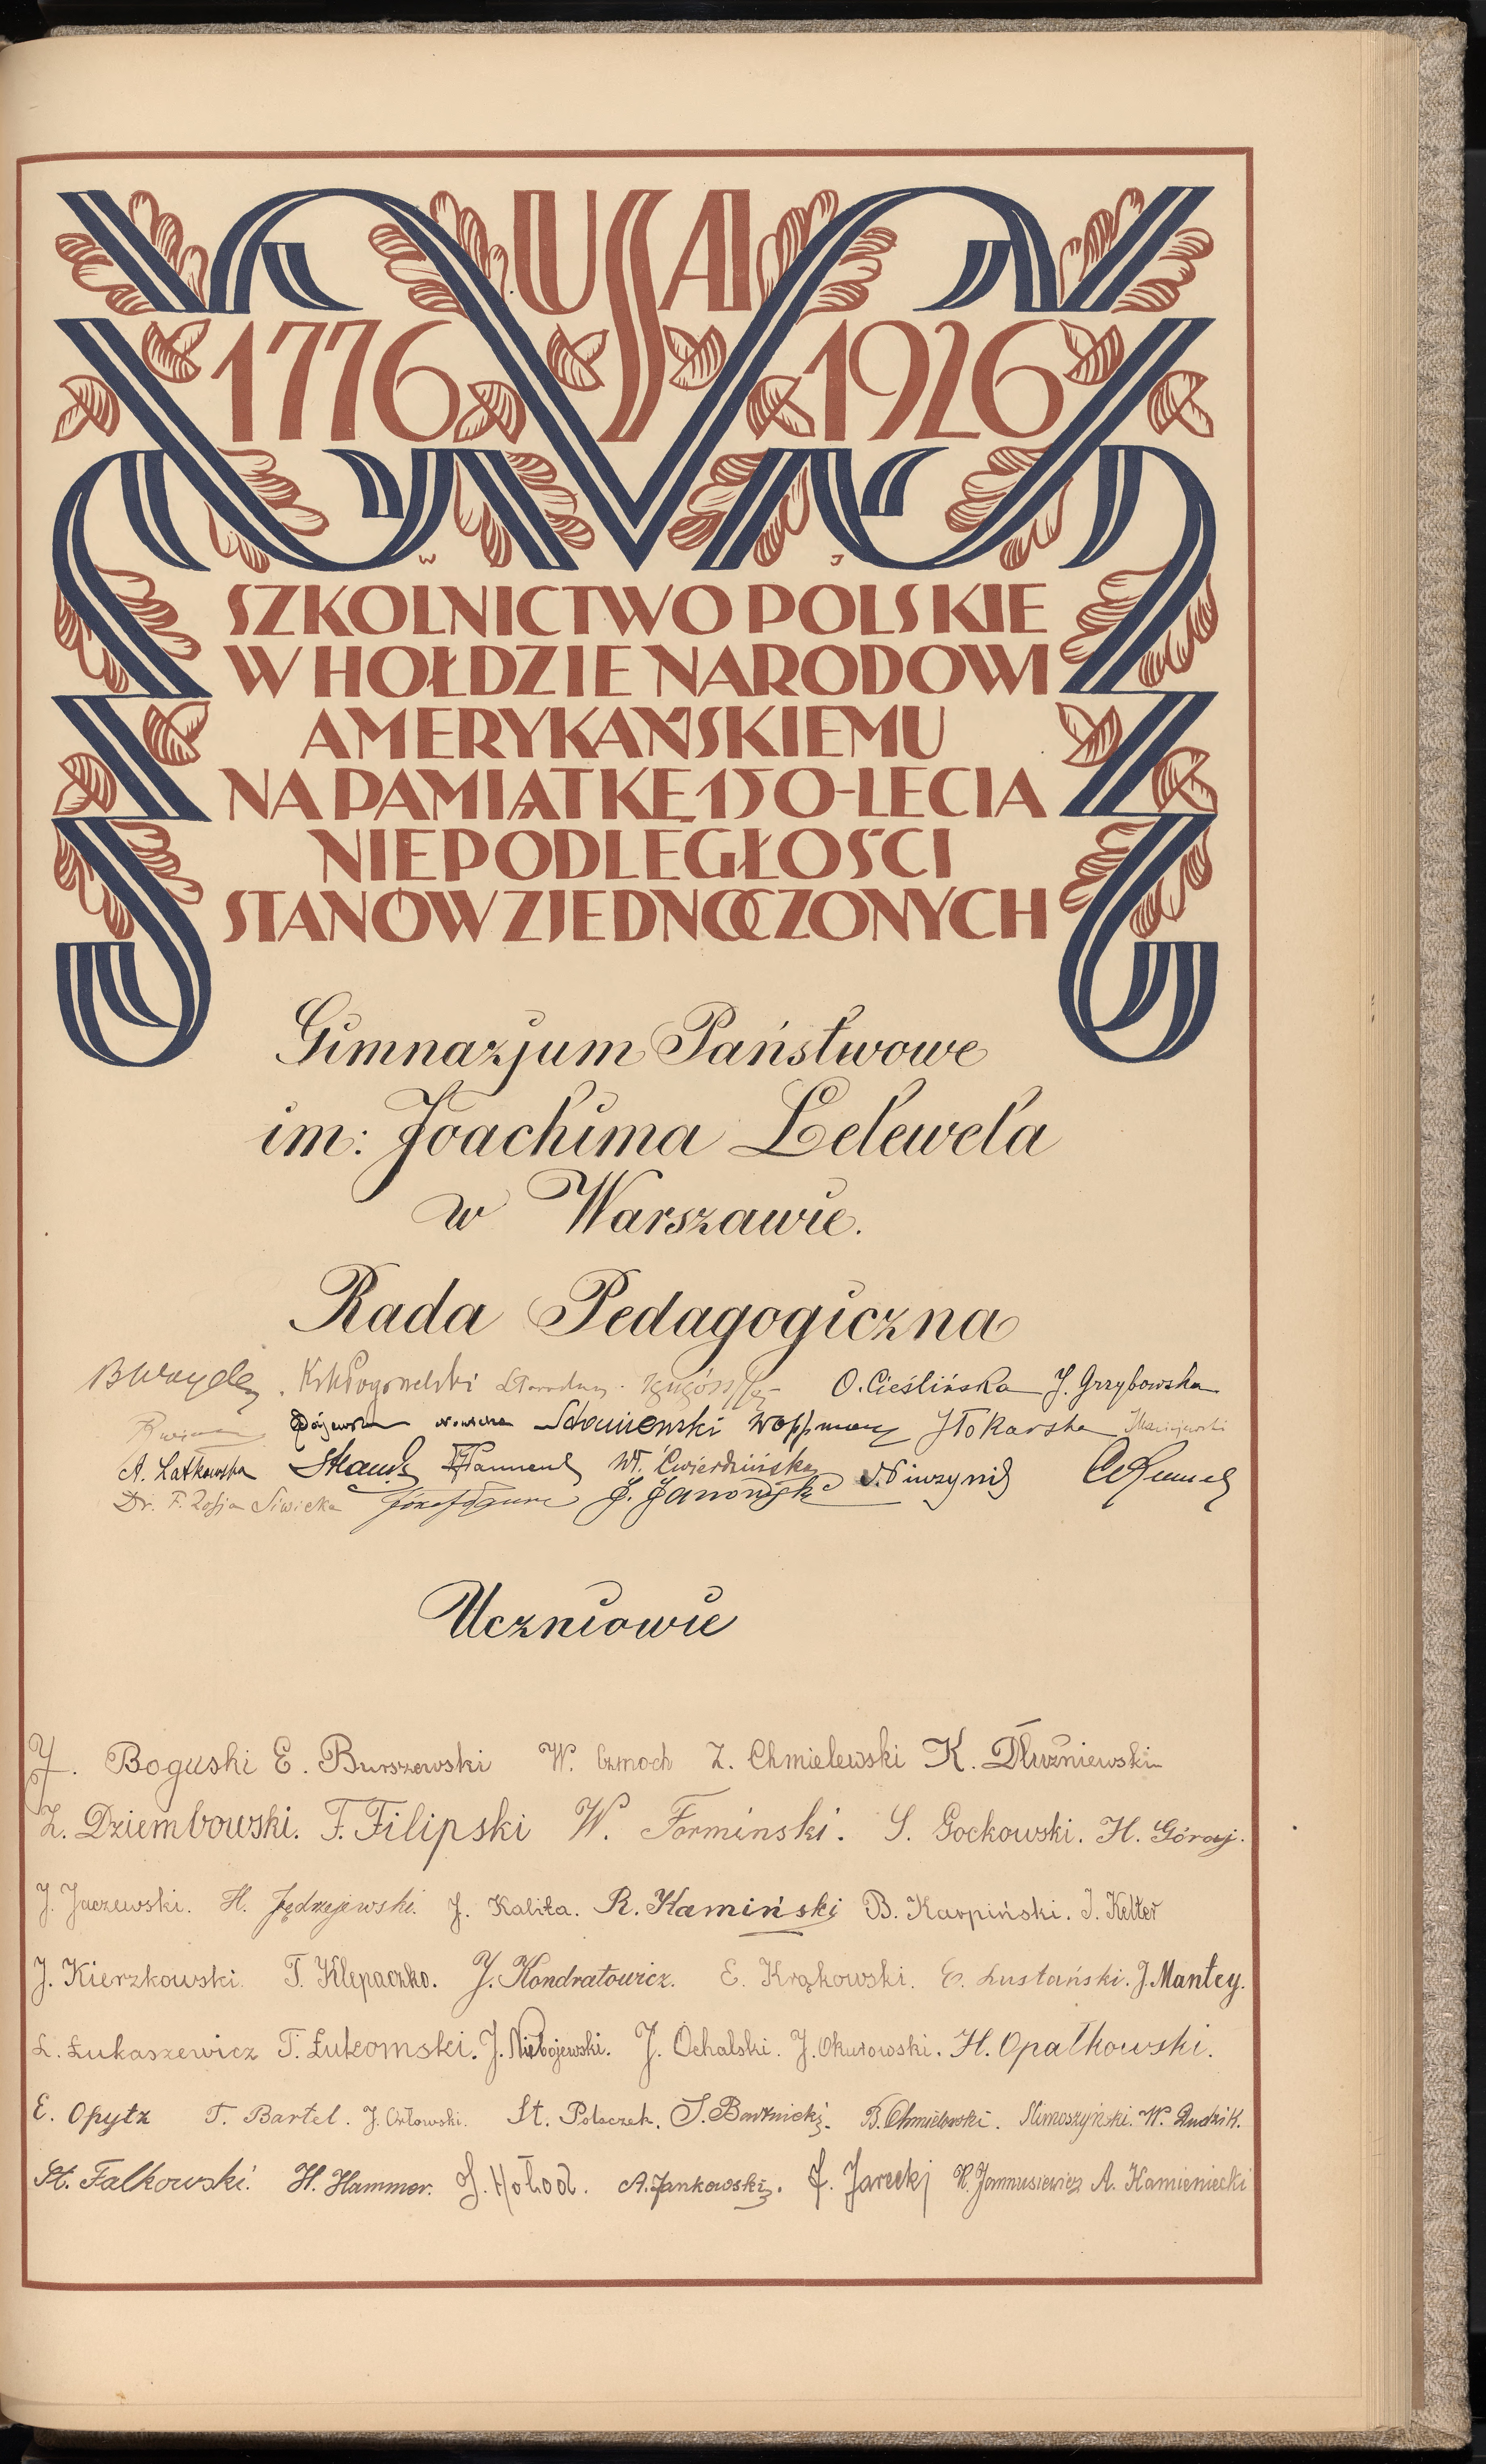 USA
1776 1926
W J
SZKOLNICTWO POLSKIE
W HOŁDZIE NARODOWI
AMERYKAŃSKIEMU
NA PAMIĄTKĘ 150-LECIA
NIEPODLEGŁOŚCI
STANÓW ZJEDNOCZONYCH
Gimnazjum Państwowe
im: Joachima Lelewela
w Warszawie.
Rada Pedagogiczna
O. Cieślińska J. Grzybowska
J Tokarska
A. Łatkowska Wł. Ćwierdzińska
Dr. F. Zofja Siwicka J. Janowska
Uczniowie
J. Boguski E. Burszewski W. Czmoch Z. Chmielewski K. Dłużniewski
Z. Dziembowski. F. Filipski W. Formiński. S. Gockowski. H. Góraj.
J. Jaczewski. H. Jędrzejewski. J. Kalita. R. Kamiński B. Karpiński. J. Kelter
J. Kierzkowski. T. Klepaczko. J. Kondratowicz. E. Krąkowski. E. Lustański. J. Mantey.
L. Łukaszewicz T. Łukomski. J. Niebojewski. J. Ochalski. J. Okurowski. H. Opałkowski.
E. Opytz T. Bartel. J. Orłowski. St. Polaczek. B. Chmielewski. W. Rudzik.
St. Falkowski. H. Hammer. J. Hołod. A. Jankowski. F. Jarecki H. Jannusiewicz A. Kamieniecki